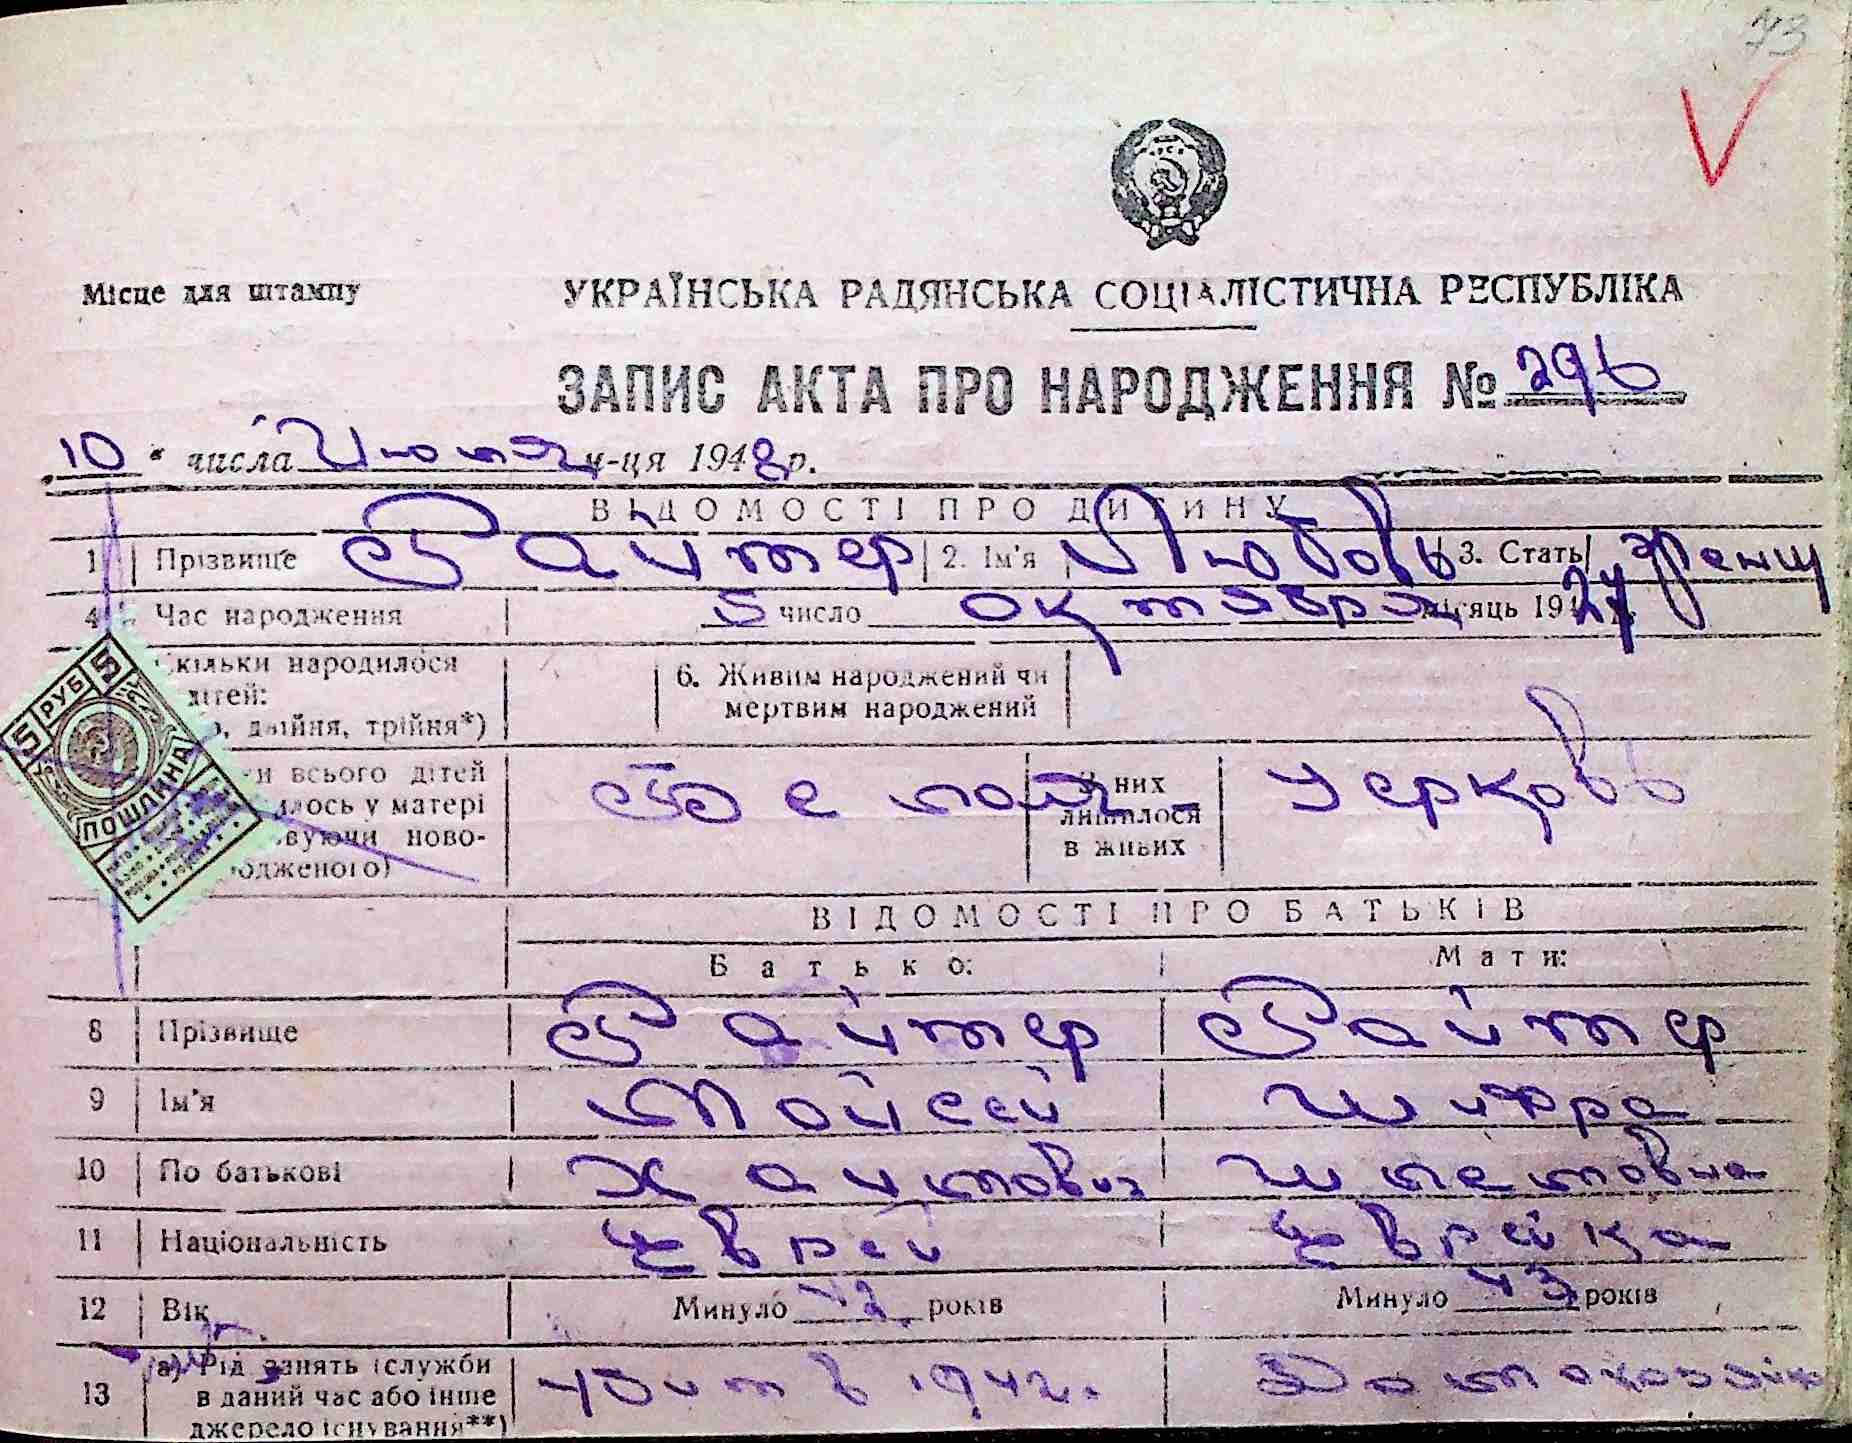 73
Місце для штампу
УКРАЇНСЬКА РАДЯНСЬКА СОЦІАЛІСТИЧНА РЕСПУБЛІКА
ЗАПИС АКТА ПРО НАРОДЖЕННЯ № 296
10 " числа Июля м-ця 1948 р.
ВІДОМОСТІ ПРО ДИТИНУ
1 Прізвище Райтер 2. Ім'я Любовь 3. Стать женщ
4 Час народження 5 число октября місяць 1924 р.
скільки народилося дітей:
6. Живим народжений чи мертвим народжений
двійня, трійня*)
всього дітей
лось у матері
вуючи ново-
родженого)
З них лишилося в живих
5 РУБ 5
ПОШЛИНА
ВІДОМОСТІ ПРО БАТЬКІВ
Батько: Мати:
8 Прізвище Райтер Райтер
9 Ім'я Мойсей Шифра
10 По батькові Хаимович Шлемовна
11 Національність Еврей Еврейка
12 Вік Минуло 42 років Минуло 43 років
13 а) Рід занять (служби в даний час або інше джерело існування**) Убит в 1942г. Домохозяйка